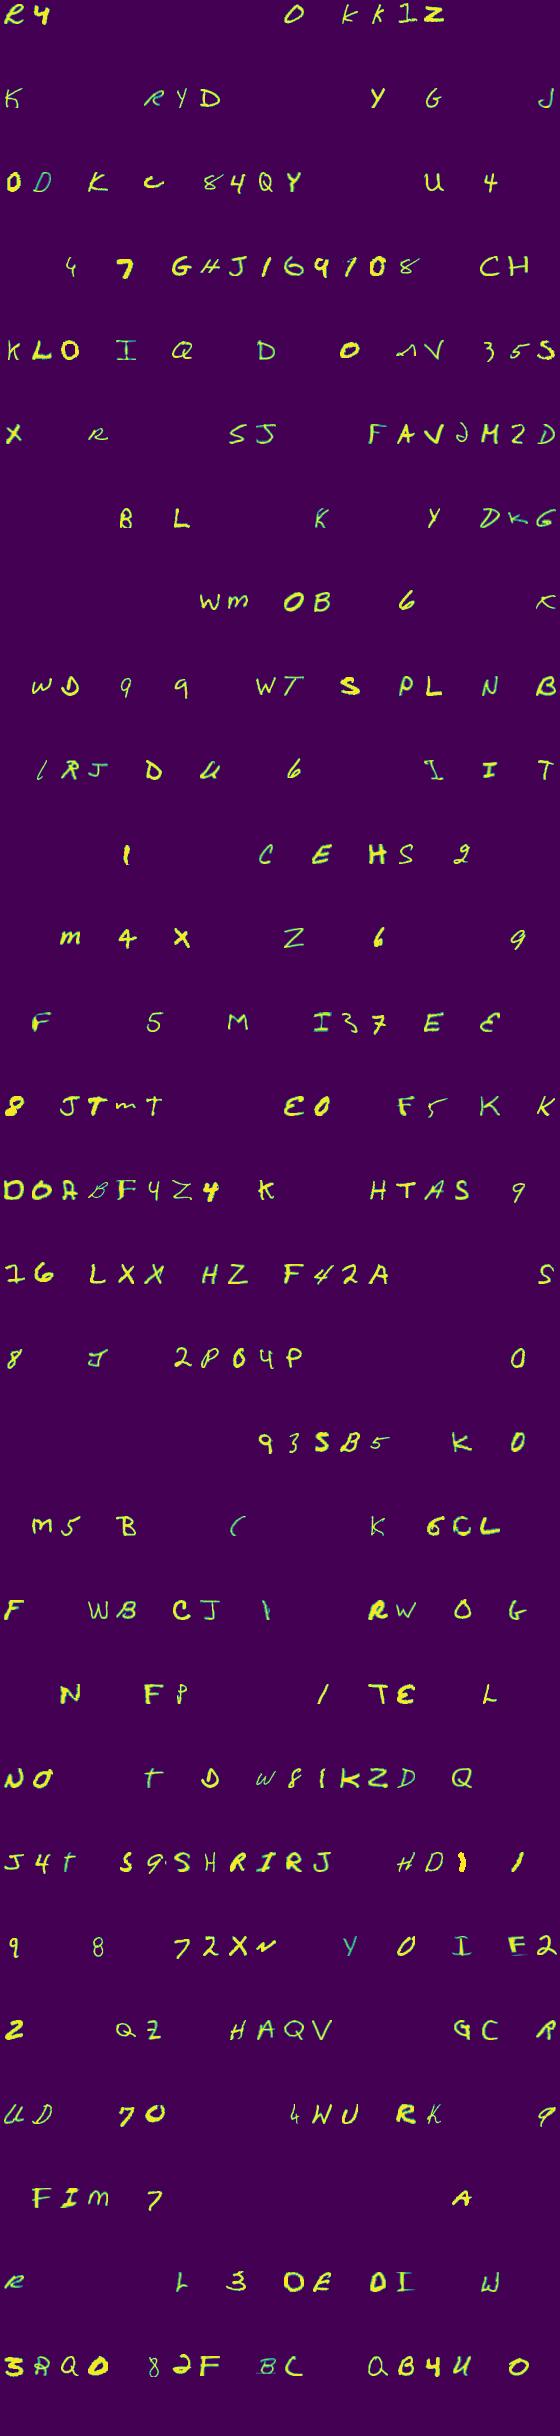 R4 O KK1Z
K RYD Y G J
0D K C 84QY U 4
4 7 GHJ169108 CH
KLO I Q D 0 NV 35S
X R SJ FAVJM2D
B L K Y DKG
WM OB 6 K
WD 9 9 WT S PL N B
1RJ D U 6 I I T
1 C E HS 2
M 4 X Z 6 9
F 5 M I37 E E
8 JTMT E0 F5 K K
DOABF4Z4 K HTAS 9
16 LXX HZ F42A S
8 J 2P04P 0
93SB5 K 0
M5 B C K 6CL
F WB CJ 1 RW O G
N FP 1 TE L
NO T D W81KZD Q
J4T S9SHRIRJ HD1 1
9 8 72XN Y 0 I F2
2 QZ HAQV GC R
UD 70 4WU RK 9
FIM 7 A
R L 3 OE DI W
3RQ0 82F BC QB4U 0